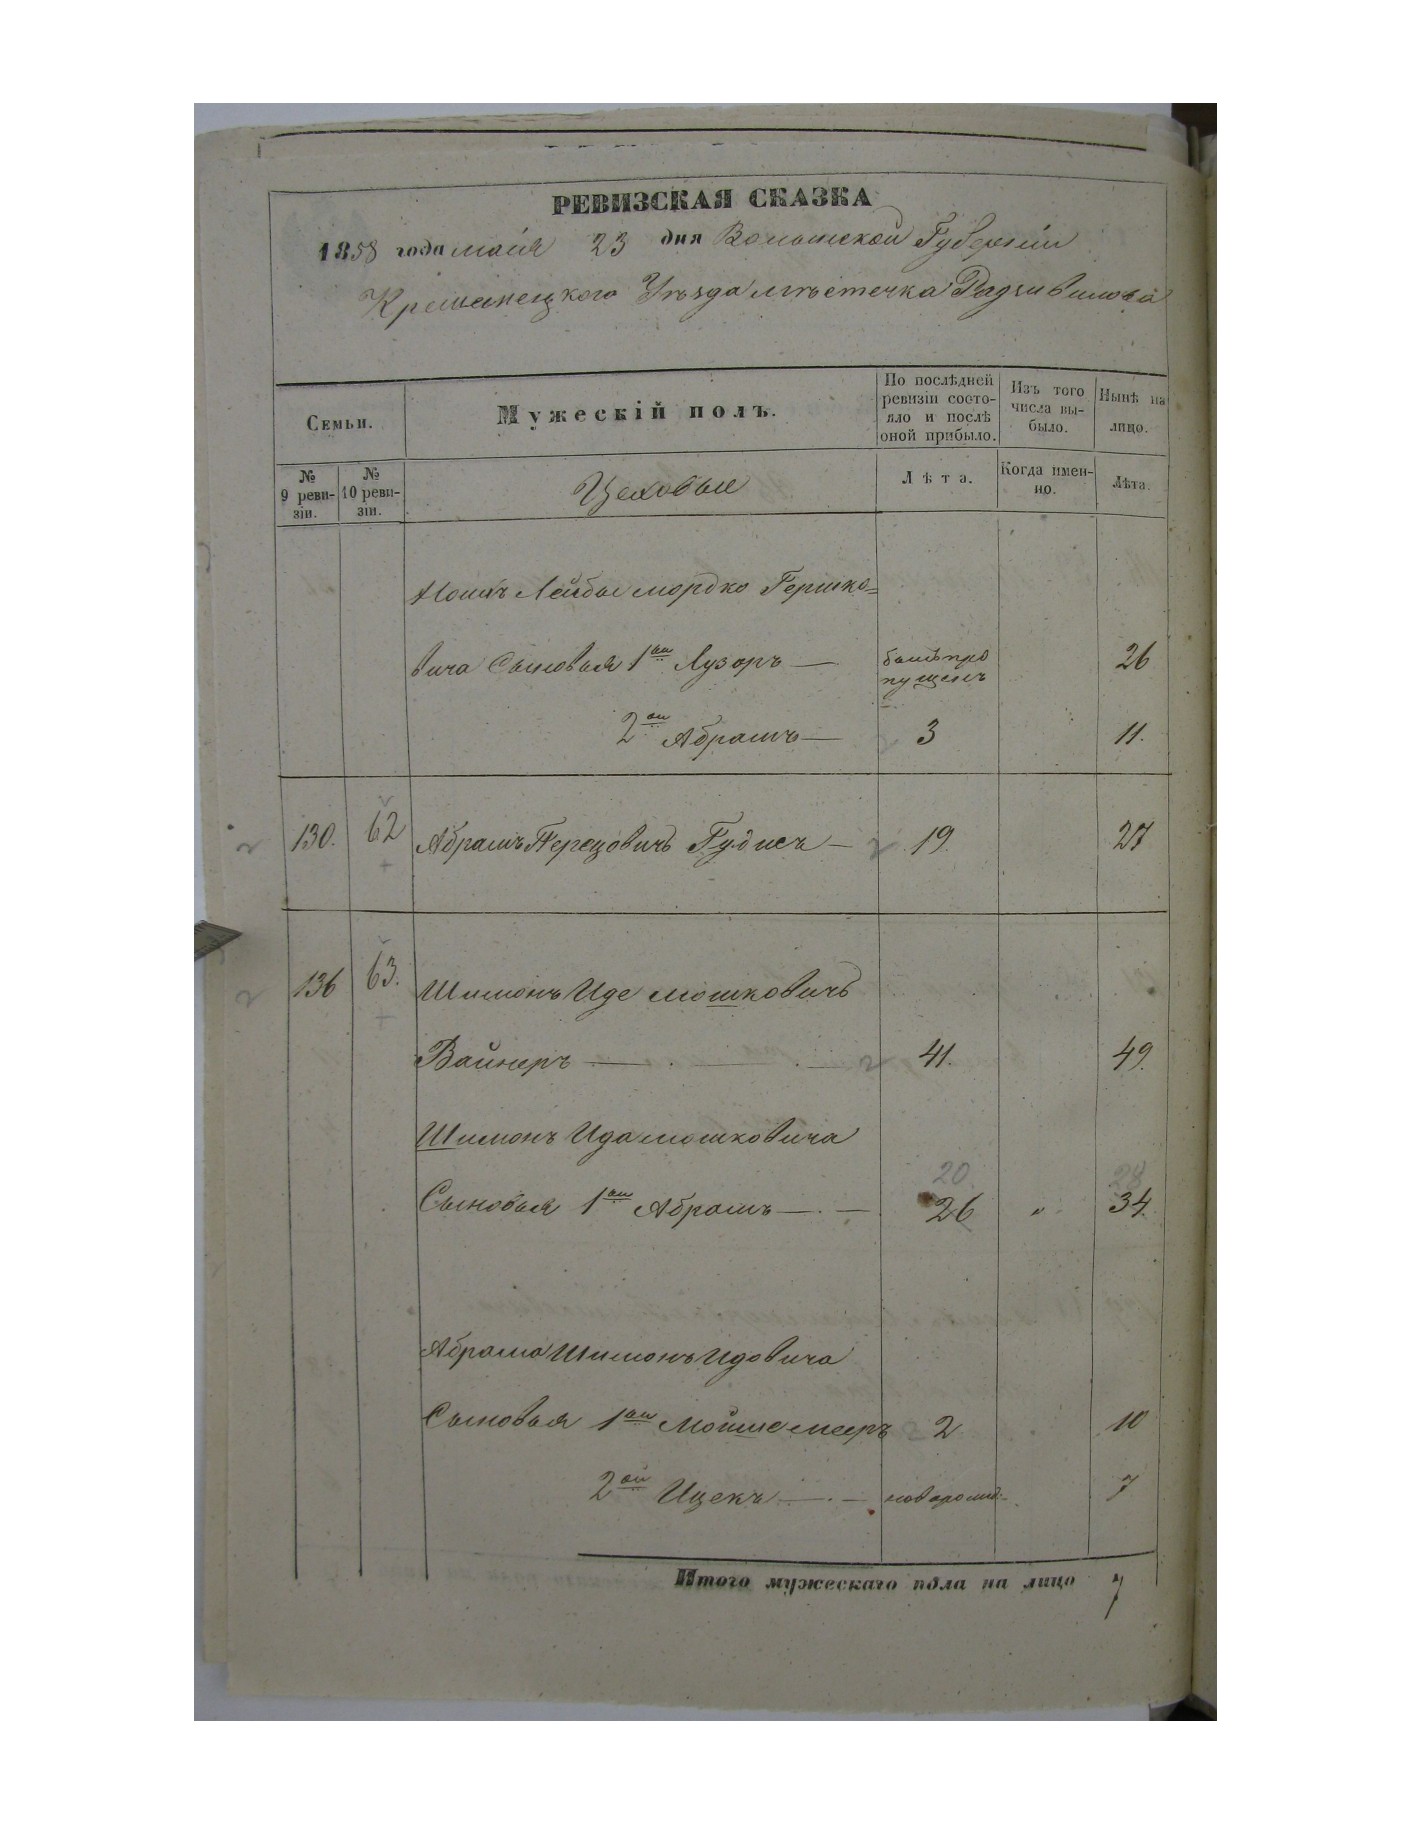 РЕВИЗСКАЯ СКАЗКА
1858 года мая 23 дня Волынской Губерніи
Кременецкого Уѣзда мѣстечка Радзивилова
Семьи.
Мужескій полъ.
По послѣдней ревизіи состояло и послѣ оной прибыло.
Изъ того числа выбыло.
Нынѣ на лицо.
№ 9 ревизіи.
№ 10 ревизіи.
Цеховые
Лѣта.
Когда именно.
Лѣта.
Лейбы Мордко Гершко=
вича Сыновья 1ый Лузоръ — былъ пропущенъ 26
2ой Абрамъ — 3 11.
130. 62 Абрамъ Перецовичъ Гудисъ — 19. 27
136 63. Шимонъ Иде Мошковичъ
Вайнеръ — 41. 49.
Шимонъ Ида Мошковича
20. 28
Сыновья 1ый Абрамъ — 26 „ 34.
Абрама Шимонъ Идовича
Сыновья 1ый Мойше Мееръ 2 10
2ой Ицекъ — новорожд: 7
Итого мужескаго пола на лицо 7